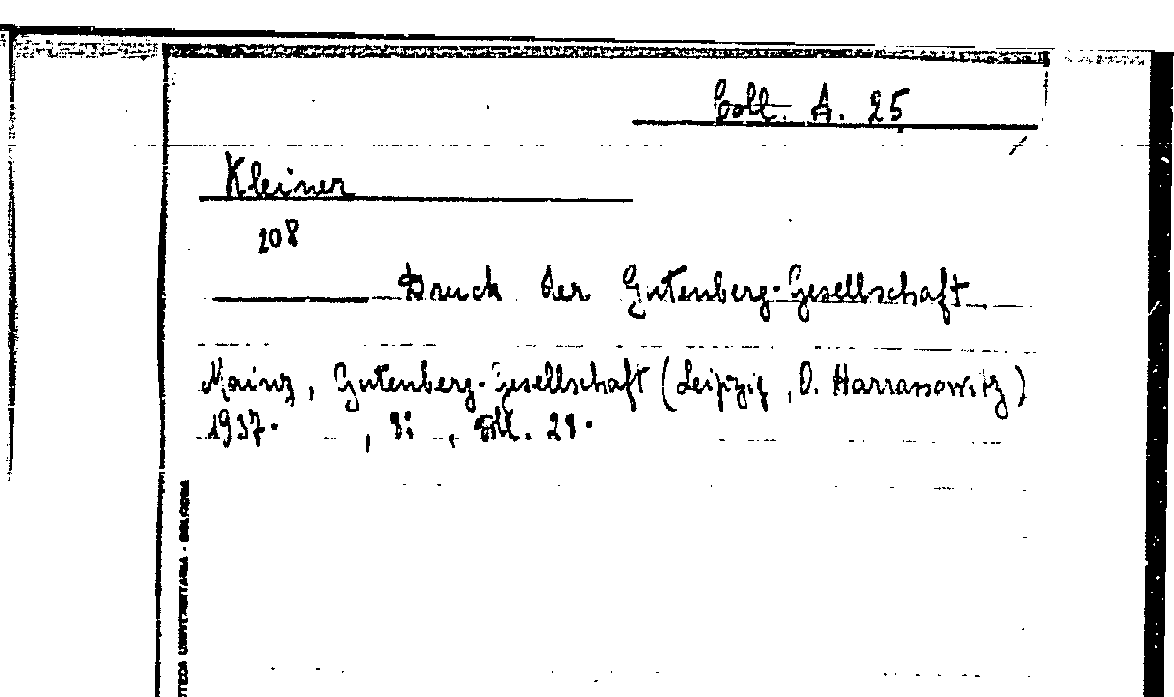 Coll. A. 25
Kleiner
208
Druck der Gutenberg-Gesellschaft
Mainz, Gutenberg-Gesellschaft (Leipzig, O. Harrassowitz)
1937. , 8° , 28.
TECA UNIVERSITARIA - BOLOGNA